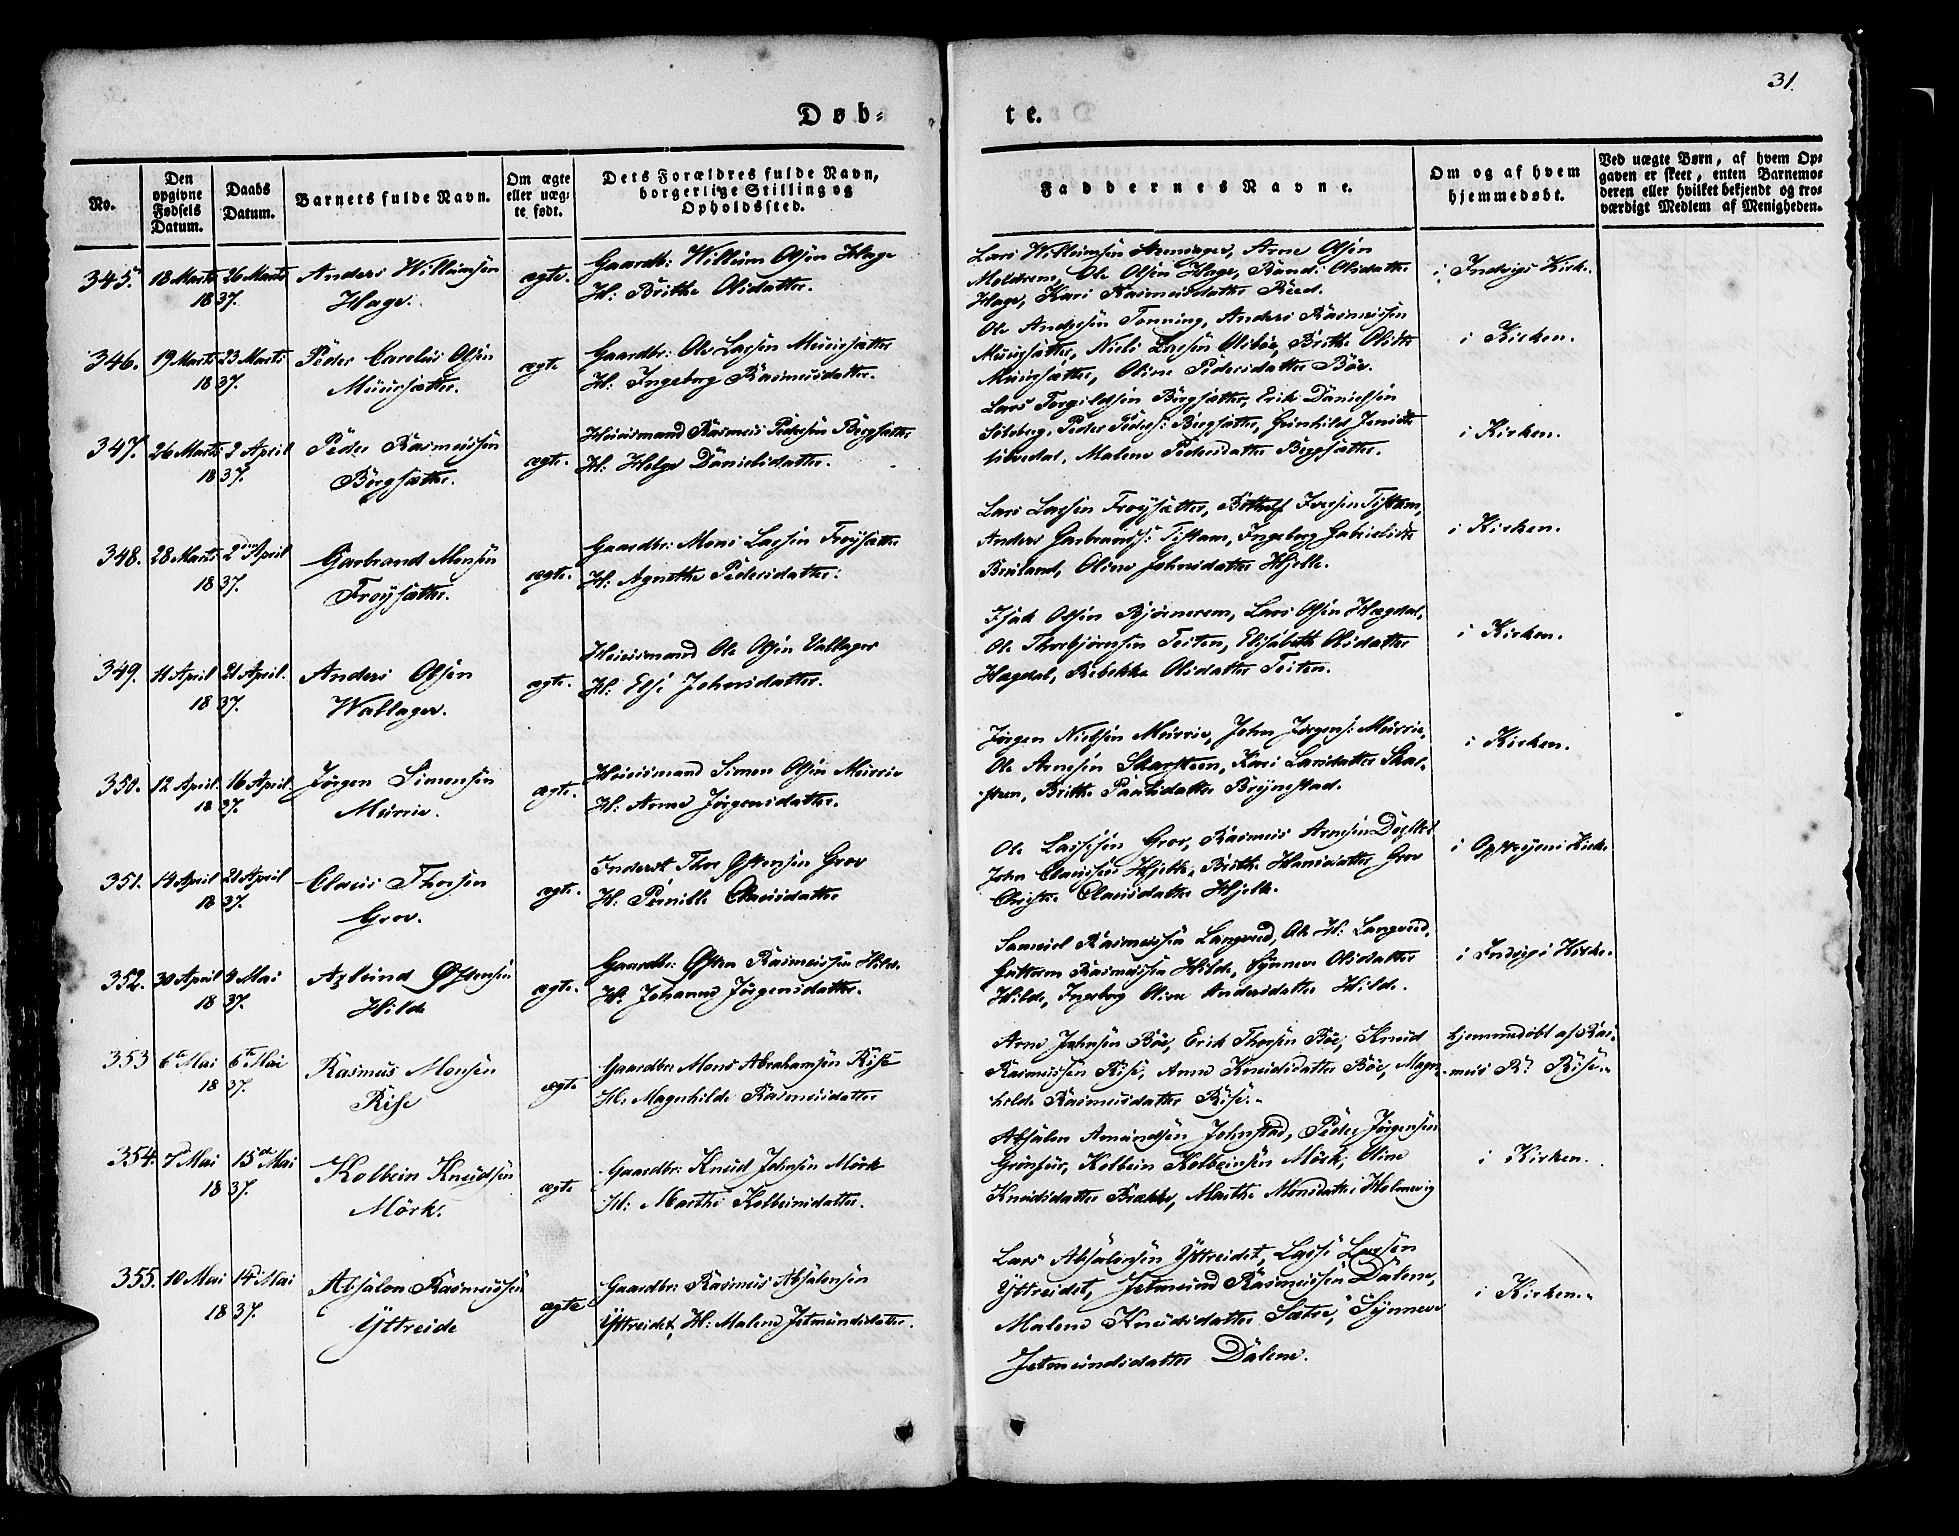 31.
Døb-
te.
No.
Den opgivne Fødsels Datum.
Daabs Datum.
Barnets fulde Navn.
Om ægte eller uægte født.
Dets Forældres fulde Navn, borgerlige Stilling og Opholdssted.
Faddernes Navne.
Om og af hvem hjemmedøbt.
Ved uægte Børn, af hvem Opgaven er skeet, enten Barnemoderen eller hvilket bekjendt og troværdigt Medlem af Menigheden.
345. 18 Marts 26 Marts Anders Willumsen ægte. Gaardb: Willum Olsen Hage
1837. Hage. H: Brithe Olsdatter.
Lars Willumsen Arne Olsen
Meldrem, Ole Olsen Hage, Randi Olsdatter
Hage, Kari Rasmusdatter Reed.
i Indvigs Kirke.
346. 19 Marts 23 Marts Peder Carelius Olsen ægte Gaardbr: Ole Lassen Muursætter
1837. Muursætter. H: Ingeborg Rasmusdatter.
Ole Andersen Tenning, Anders Rasmussen
Muursætter, Niels Lassen Brithe Olsdtr
Muursætter, Oline Pedersdatter Böe.
i Kirken.
347. 26 Marts 2 April Peder Rasmussen ægte. Huusmand Rasmus Pedersen Bergsætter
1837. Bergsætter. H: Helge Danielsdatter.
Lars Torgildsen Bergsætter, Erik Danielsen
Solvberg, Peder Peders: Bergsætter, Gunhild
Malene Pedersdatter Bergsætter.
i Kirken.
348. 28 Marts 2den April Garbrand Monsen ægte. Gaardbr: Mons Lassen Froysætter
1837. Froysætter. H: Agnethe Pedersdatter.
Lars Lassen Froysætter, Iversen Tistam,
Anders Garbrands: Tistam, Ingeborg Gabrielsdtr
Oline Johnsdatter Hjelle.
i Kirken.
349. 11 April 21 April. Anders Olsen ægte. Huusmand Ole Olsen Vallager
1837. Wallager. H: Else Johnsdatter.
Isak Olsen Bjørnerem, Lars Olsen Hægdal,
Ole Thorbjørnsen Teiten, Elisabeth Olsdatter
Hægdal, Rebekka Olsdatter Teiten.
i Kirken.
350. 12 April 16 April Jørgen Simonsen ægte. Huusmand Simon Olsen Murrie
1837. Murrie. H: Anne Jørgensdatter.
Jørgen Nielsen Murrie, John Jørgens: Murrie,
Ole Arnesen Skarsteen, Kari Larsdatter Skar-
steen, Brithe Paulsdatter Brynestad.
i Kirken.
351. 14 April 21 April Claus Thorsen ægte. Inderst Thor Østensen Grov
1837. Grov. H: Pernille Clausdatter
Ole Lassesen Grov, Rasmus Arnesen
John Clausen Hjelle, Brithe Hansdatter Grov
Clausdatter Hjelle.
i Opstryens Kirke
352. 30 April 4 Mai Azlund Østensen ægte. Gaardbr: Østen Rasmussen Hilde
1837. Hilde H: Johanne Jørgensdatter.
Samuel Rasmussen Langved, Ole H: Langved,
Guttorm Rasmussen Hilde, Synneve Olsdatter
Hilde, Ingeborg Oline Andersdatter Hilde.
i Indvigs Kirke.
353 6te Mai 6te Mai Rasmus Monsen ægte Gaardbr: Mons Abrahamsen Rise
1837. Rise H: Magnhilde Rasmusdatter
Arne Johnsen Böe, Erik Thorsen Böe, Knud
Rasmussen Rise, Anne Knudsdatter Böe, Magn-
hilde Rasmusdatter Rise.
hjemmedøbt af Ras-
mus Rs Rise.
354. 7de Mai 15de Mai Kolbein Knudsen ægte Gaardbr: Knud Johnsen Mörk
1837. Mörk. H: Marthe Kolbeinsdatter.
Absalon Amundsen Johnstad, Peder Jørgensen
Grønfur, Kolbein Kolbeinsen Mörk, Oline
Knudsdatter Brække, Marthe Monsdatter Holmevig
i Kirken.
355. 10 Mai 14 Mai Absalon Rasmussen ægte Gaardbr: Rasmus Absalonsen
1837. Yttreide Yttreidet, H: Malene Jetmundsdatter.
Lars Absalonsen Yttreidet, Lasse Larsen
Yttreidet, Jetmund Rasmussen Dalene,
Malene Knudsdatter Sætre, Synneve
Jetmundsdatter Dalene.
i Kirken.